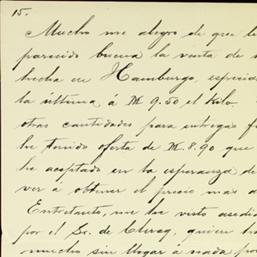 15.
Mucho me alegro de que le
parecido buena la venta de s
hecha en Hamburgo, especial
la última á M 9.50 el Kilo
otras cantidades para entregas f
he tenido oferta de M. 8.90 que
he aceptado en la esperanza de
ver á obtener el precio mas a
Entretanto, me he visto asedia
por el Sr. de
mucho sin llegar á nada por